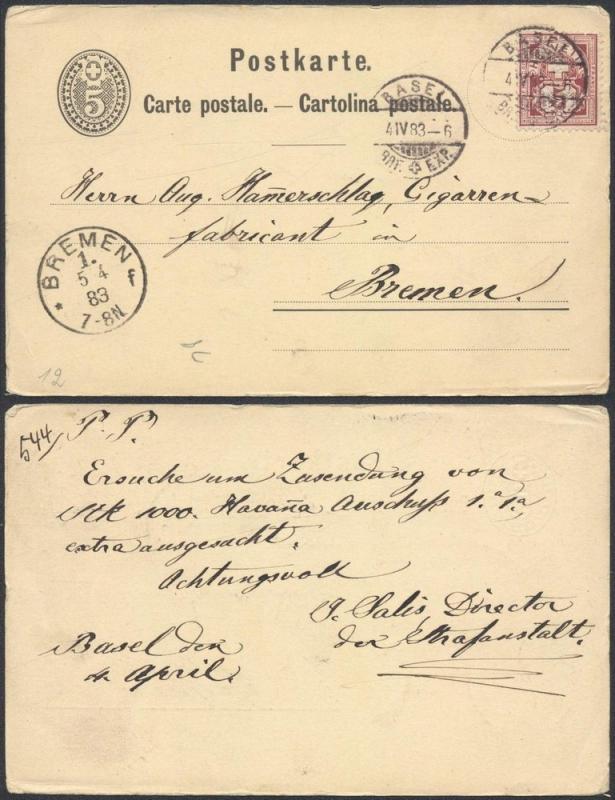 Postkarte.
Carte postale. — Cartolina postale.
5
BASEL
4 IV
BASEL
4 IV 83 — 6
BRF. EXP.
Herrn Aug. Ham̅erschlag, Cigarren-
fabricant in
Bremen.
BREMEN
1.
5 4
83
7-8N
* f
12
544/
P. P.
Ersuche um Zusendung von
Stk 1000. Havaña Auschuß 1.ª 1.ª
extra ausgesacht.
Achtungsvoll
J. Salis, Director
der Strafanstalt.
Basel den
4. April.